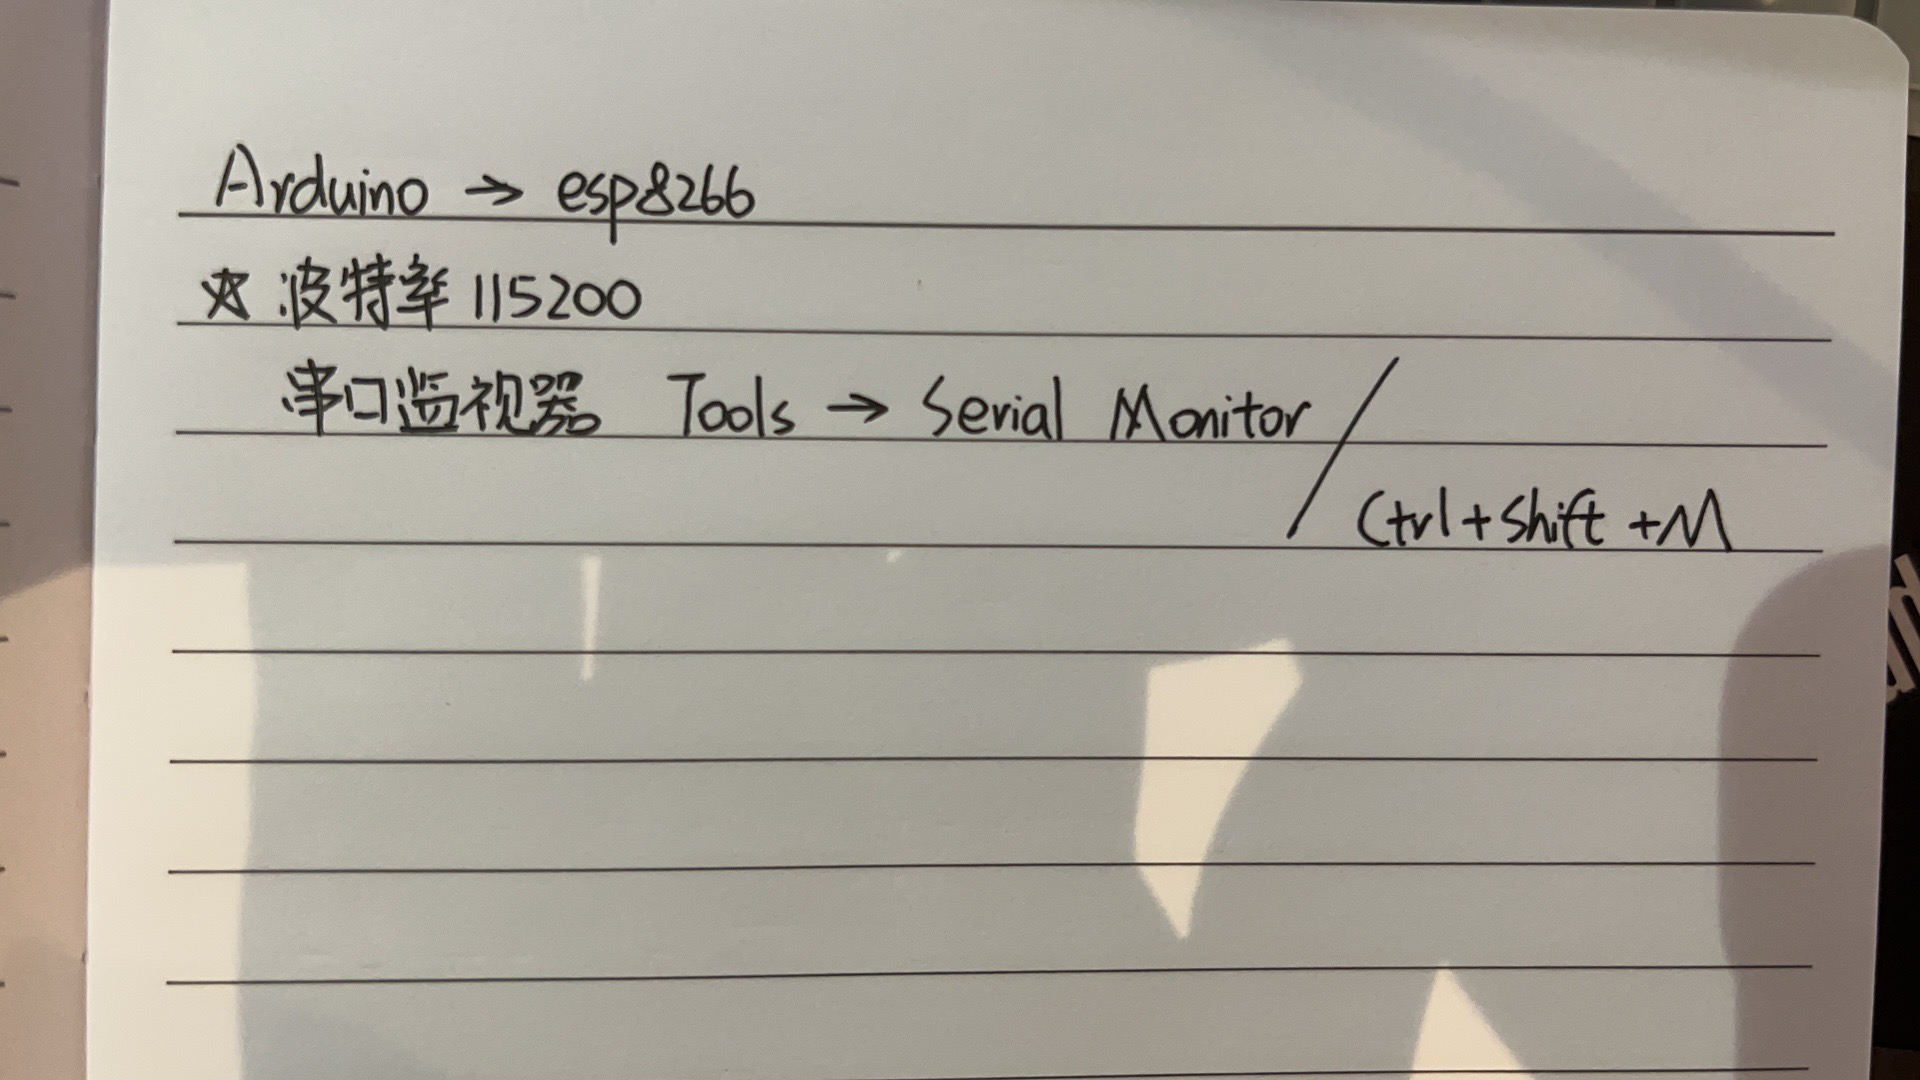 Arduino → esp8266
☆ 波特率 115200
串口监视器 Tools → Serial Monitor /
Ctrl+Shift+M